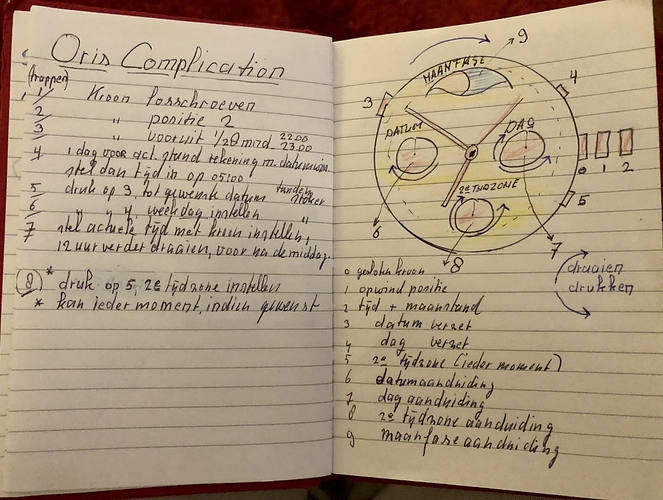 Oris Complication
(stappen)
1 Kroon losschroeven
2 " positie 2
3 " vooruit 1/2 θ mrd 22.00 23.00
4 1 dag voor act. stand rekening m. datum
stel dan tijd in op 05:00
5 druk op 3 tot gewenste datum tandenstoker
6 " " 4, weekday instellen "
7 stel actuele tijd met kroon instellen,
12 uur verder draaien, voor na de middag.
8 * druk op 5, 2e tijdzone instellen
* kan ieder moment, indien gewenst
9
MAANFASE
3
4
DATUM
DAG
0 1 2
2e TIJDZONE
5
6
7
8
draaien
drukken
0 gesloten kroon
1 opwind positie
2 tijd + maanstand
3 datum verzet
4 dag verzet
5 2e tijdzone (ieder moment)
6 datumaanduiding
7 dag aanduiding
8 2e tijdzone aanduiding
9 maanfase aanduiding